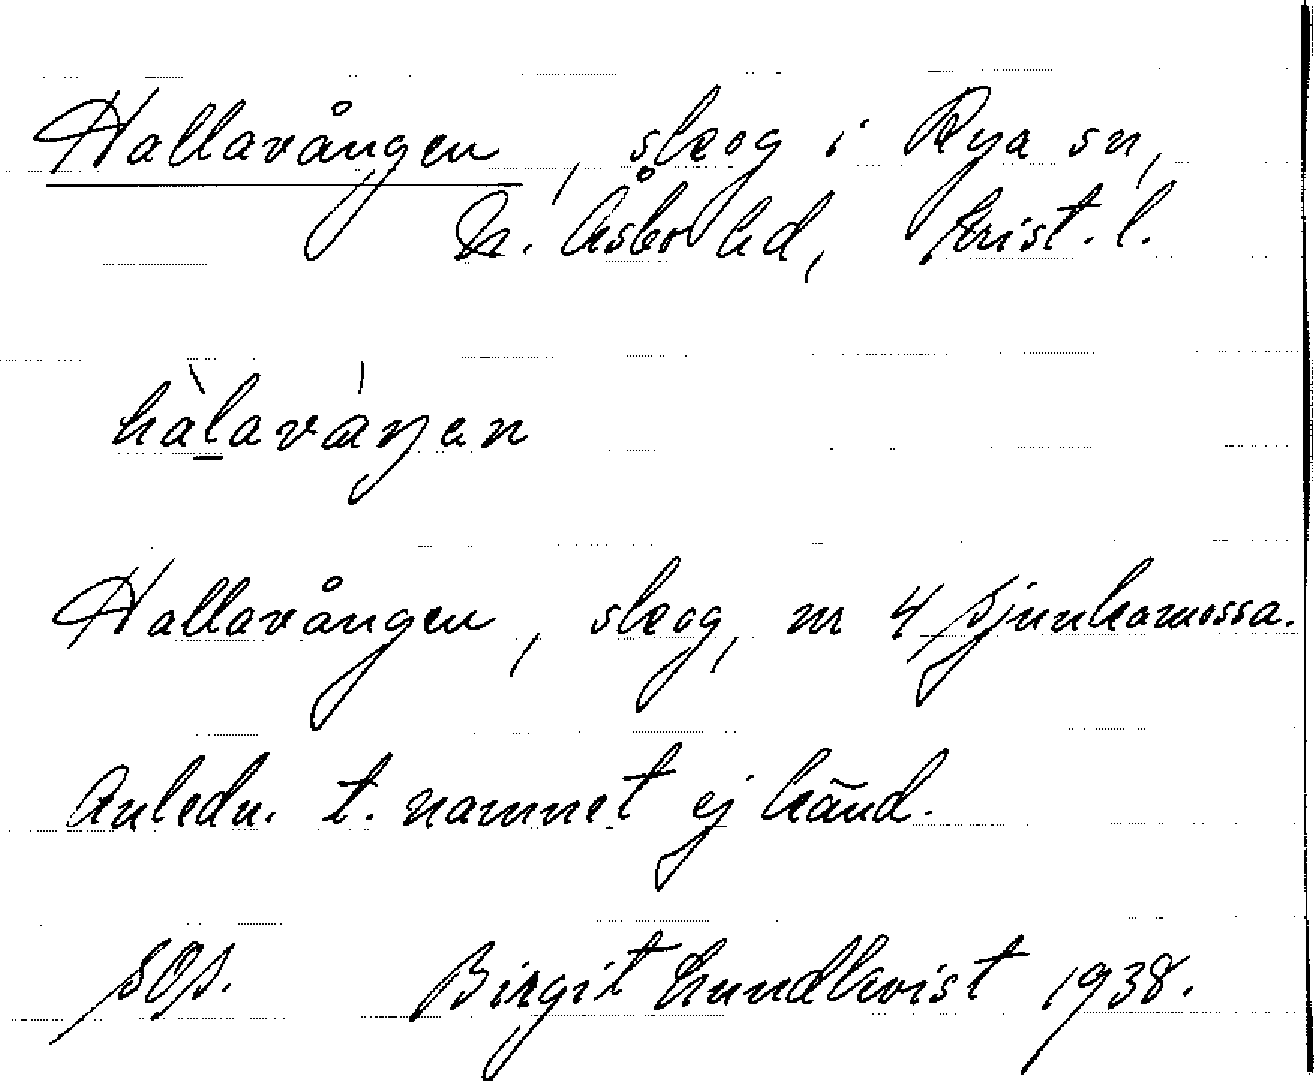 Hallavången, skog i Rya sn,
N. Åsbo hd, Krist. l.
hàlaváŋen
Hallavången, skog, nr 4 Sjunkamossa.
Anledn. t. namnet ej känd.
SOS. Birgit Lundkvist 1938.